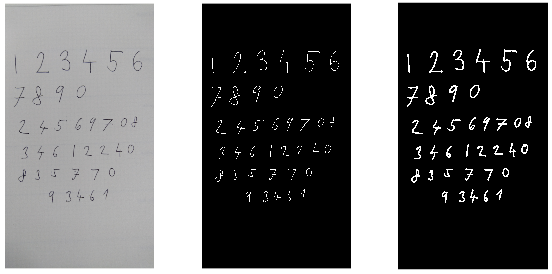 1 2 3 4 5 6
7 8 9 0
2 4 5 6 9 7 0 8
3 4 6 1 2 2 4 0
8 3 5 7 7 0
9 3 4 6 1
1 2 3 4 5 6
7 8 9 0
2 4 5 6 9 7 0 8
3 4 6 1 2 2 4 0
8 3 5 7 7 0
9 3 4 6 1
1 2 3 4 5 6
7 8 9 0
2 4 5 6 9 7 0 8
3 4 6 1 2 2 4 0
8 3 5 7 7 0
9 3 4 6 1